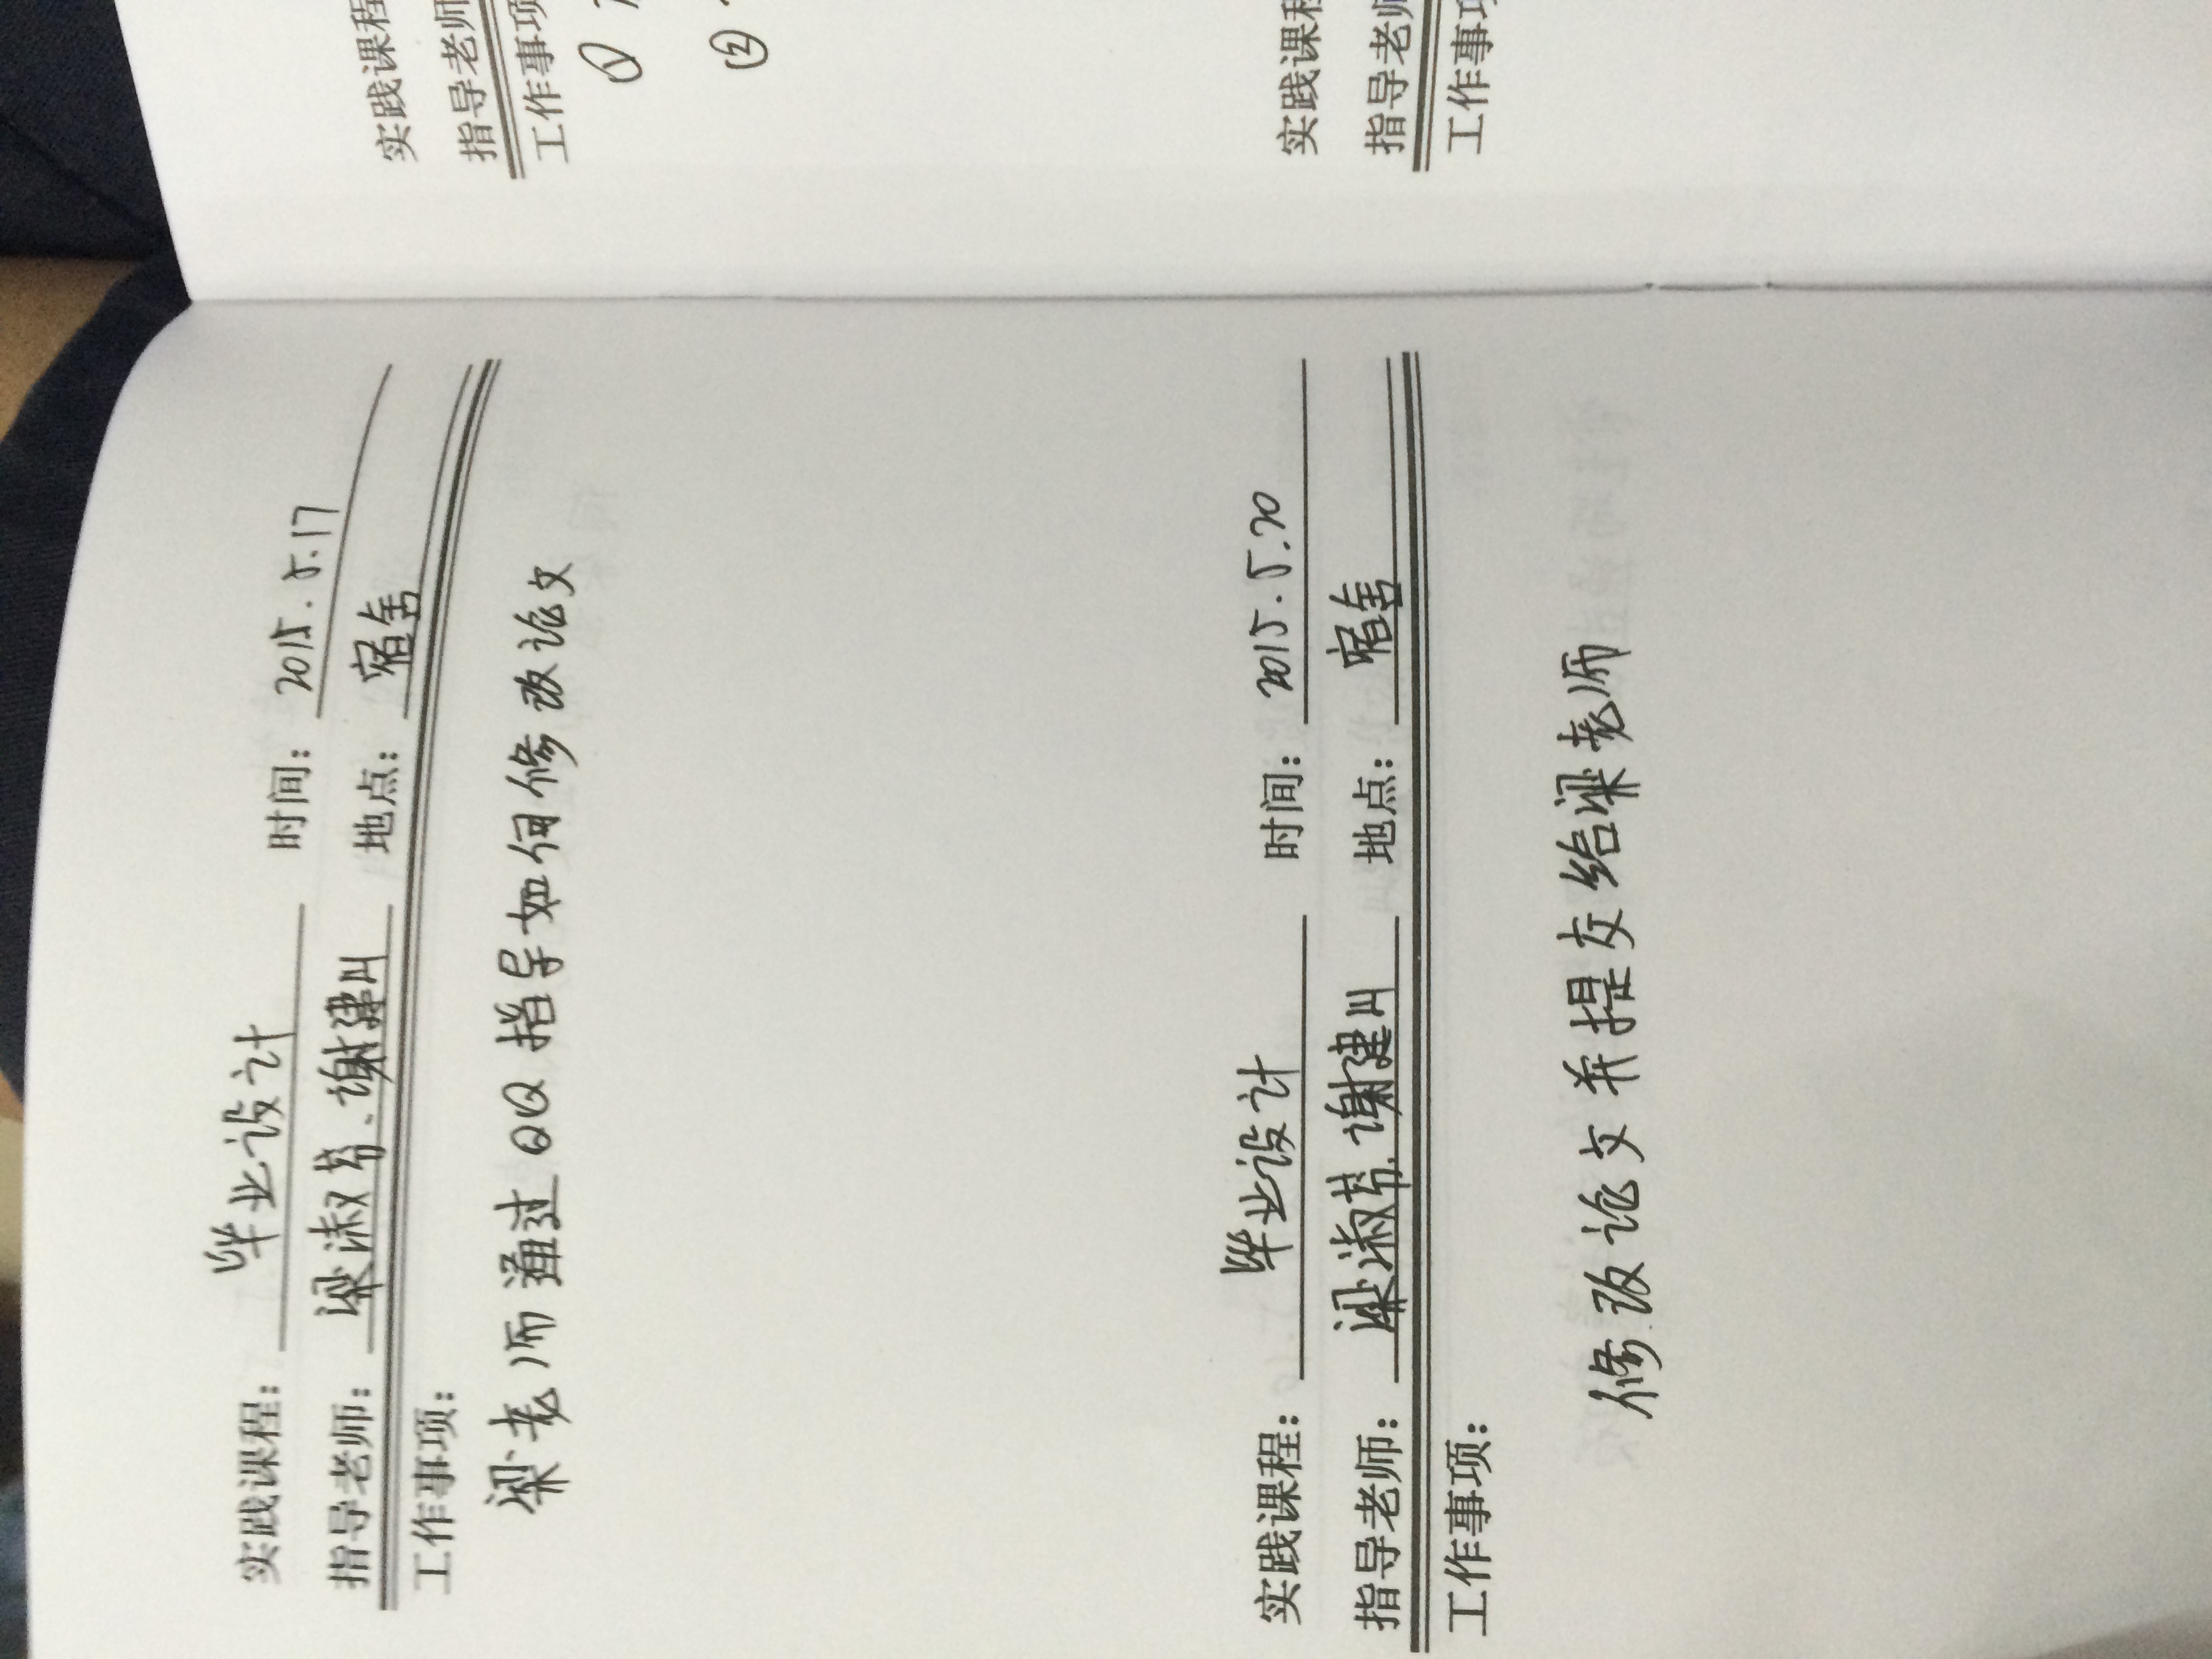 实践课程： 毕业设计 时间： 2015.5.17
指导老师： 梁淑芬、谢建川 地点： 宿舍
工作事项：
梁老师通过QQ指导如何修改论文
实践课程： 毕业设计 时间： 2015.5.20
指导老师： 梁淑芬、谢建川 地点： 宿舍
工作事项：
修改论文并提交给梁老师
实践课程
指导老师
工作事项
①
②
实践课程
指导老师
工作事项